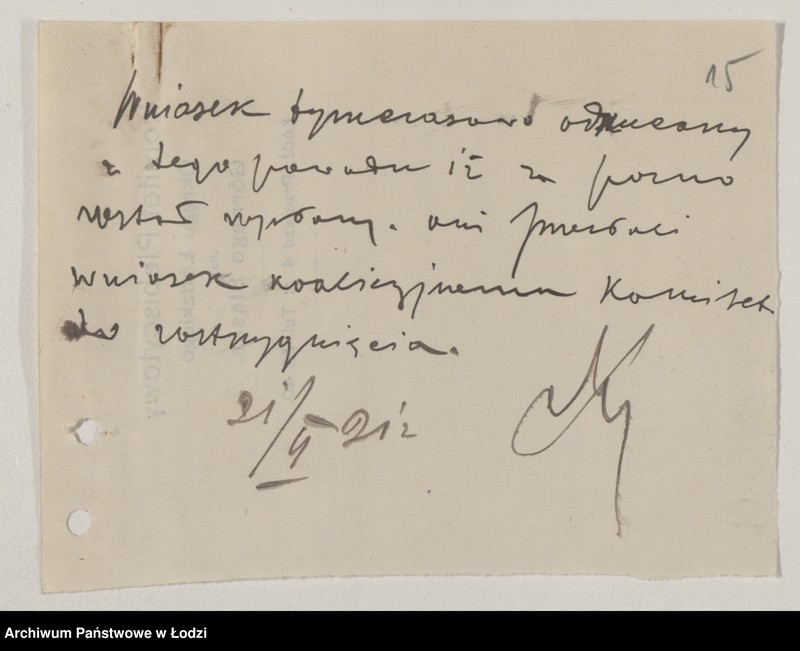 15
Wniosek tymczasowo odrzucony
z tego powodu iż za pozno
został wysłany.
wniosek koalicyjnemu Komitet
do rozstrzygnięcia.
21/II 21 r
Archiwum Państwowe w Łodzi